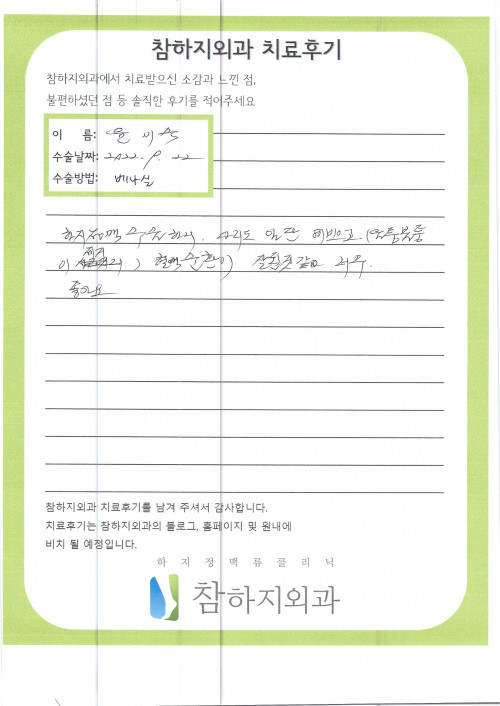 참하지외과 치료후기
참하지외과에서 치료받으신 소감과 느낀 점,
불편하셨던 점 등 솔직한 후기를 적어주세요
이 름:
수술날짜: 2022. 9. 22
수술방법: 베나실
하지정맥 수술하니, 다리도 일단 이쁘고,
이 혈액순환이 잘될것 같고 너무
좋아요
참하지외과 치료후기를 남겨 주셔서 감사합니다.
치료후기는 참하지외과의 블로그, 홈페이지 및 원내에
비치 될 예정입니다.
하지정맥류클리닉
참하지외과